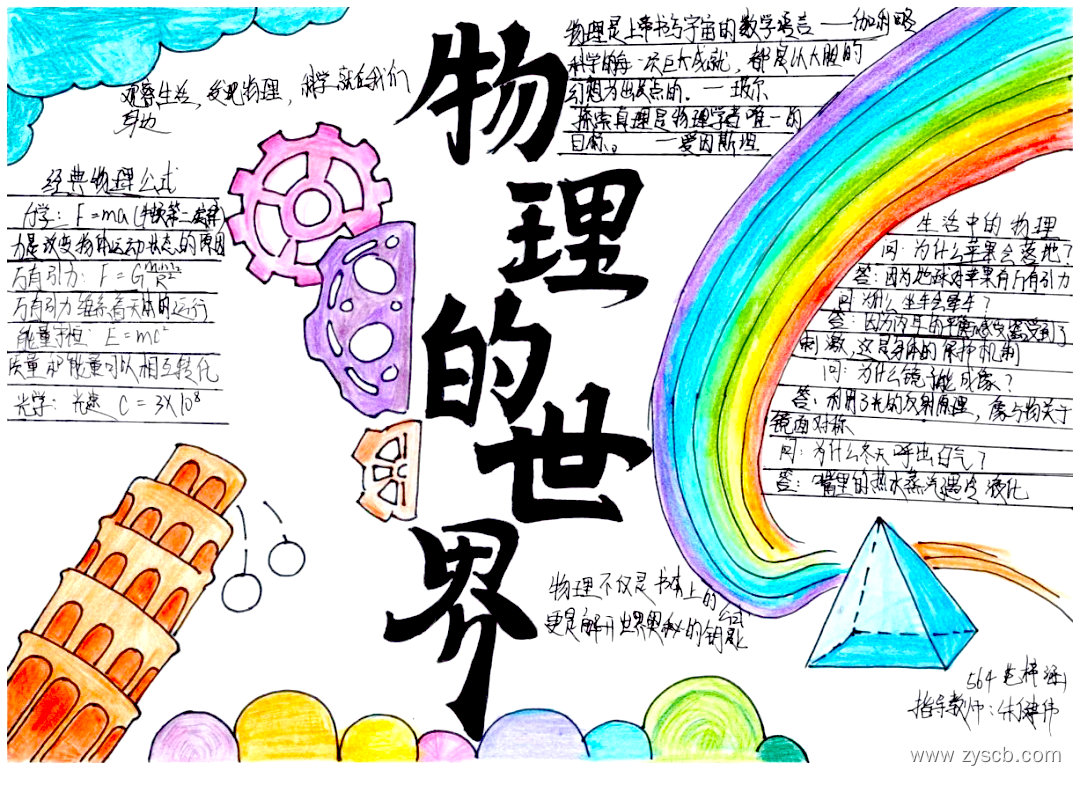 物理的世界
观察生活，发现物理，科学就在我们
身边
物理是上帝书写宇宙的数学语言 ——伽利略
科学的每一次巨大成就，都是以大胆的
幻想为出发点的。—玻尔
探索真理是物理学者唯一的
目标。 —爱因斯坦
经典物理公式
力学：F=ma（牛顿第二定律
力是改变物体运动状态的原因
万有引力：F=G m₁m₂/R²
万有引力维系着天体的运行
能量守恒：E=mc²
质量和能量可以相互转化
光学：光速 C=3×10⁸
生活中的物理
问：为什么苹果会落地？
答：因为地球对苹果有万有引力
问：为什么坐车会晕车？
答：因为内耳的平衡感受器受到了
刺激，这是身体的保护机制
问：为什么镜子能成像？
答：利用了光的反射原理，像与物关于
镜面对称
问：为什么冬天呼出白气？
答：嘴里的热水蒸汽遇冷液化
物理不仅是书本上的公式
更是解开世界奥秘的钥匙
564
指导教师：
www.zyscb.com